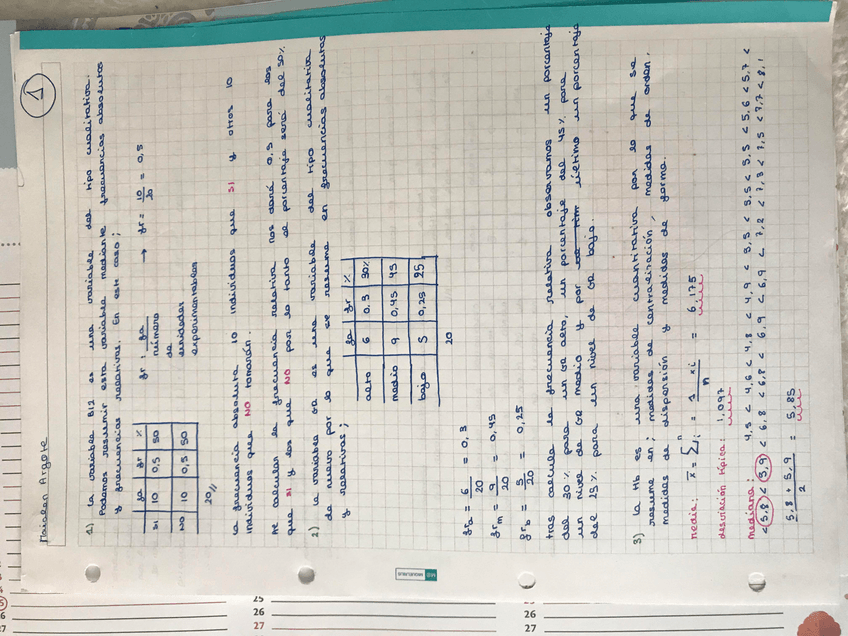 Maialen Argote
1
1) La variable B12 es una variable del tipo cualitativa.
Podemos resumir esta variable mediante frecuencias absolutas
y frecuencias relativas. En este caso;
fa fr %
SI 10 0,5 50
NO 10 0,5 50
20//
fr: fa / número de unidades experimentables → fr = 10/20 = 0,5
La frecuencia absoluta 10 individuos que SI y otros 10
individuos que NO tomarán.
Al calcular la frecuencia relativa nos dará 0,5 para los
que SI y los que NO por lo tanto el porcentaje será del 50%
2) la variable GR es una variable del tipo cualitativa
de nuevo por lo que se resume en frecuencias absolutas
y relativas;
fa fr %
alto 6 0,3 30%
medio 9 0,45 45
bajo 5 0,25 25
20
fra = 6/20 = 0,3
frm = 9/20 = 0,45
frb = 5/20 = 0,25
tras calcular la frecuencia relativa observamos un porcentaje
del 30% para un GR alto, un porcentaje del 45% para
un nivel de GR medio y por último un porcentaje
del 25% para un nivel de GR bajo.
3) la Hb es una variable cuantitativa por lo que se
resume en; medidas de centralización, medidas de orden,
medidas de dispersión y medidas de forma.
media: x̄ = Σⁿᵢ = 1 xi / n = 6,175
desviación típica: 1,097
mediana: 4,5 < 4,6 < 4,8 < 4,9 < 5,5 < 5,5 < 5,6 < 5,7 <
< 5,8 < 5,9 < 6,8 < 6,8 < 6,9 < 6,9 < 7,2 < 7,3 < 7,5 < 7,7 < 8,1
5,8 + 5,9 / 2 = 5,85
MIQUELRIUS
25
26
27
25
26
27
26
27